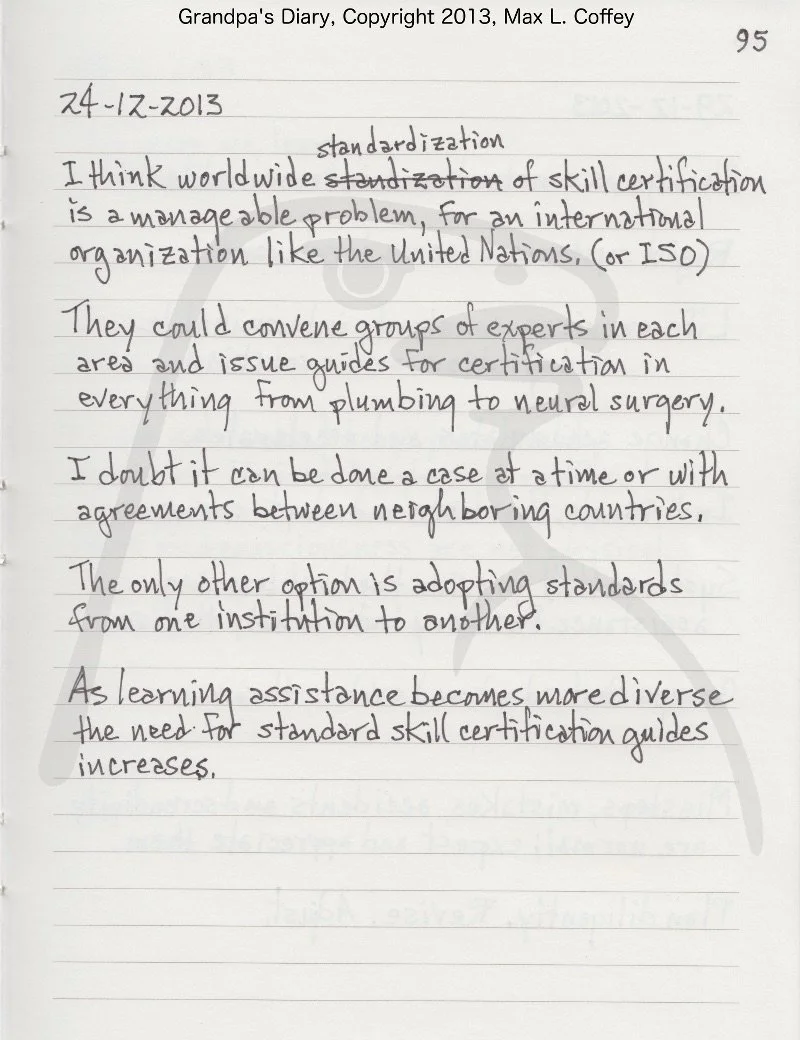 Grandpa's Diary, Copyright 2013, Max L. Coffey
95
24-12-2013
standardization
I think worldwide standization of skill certification
is a manageable problem, for an international
organization like the United Nations. (or ISO)
They could convene groups of experts in each
area and issue guides for certification in
everything from plumbing to neural surgery.
I doubt it can be done a case at a time or with
agreements between neighboring countries.
The only other option is adopting standards
from one institution to another.
As learning assistance becomes more diverse
the need for standard skill certification guides
increases.